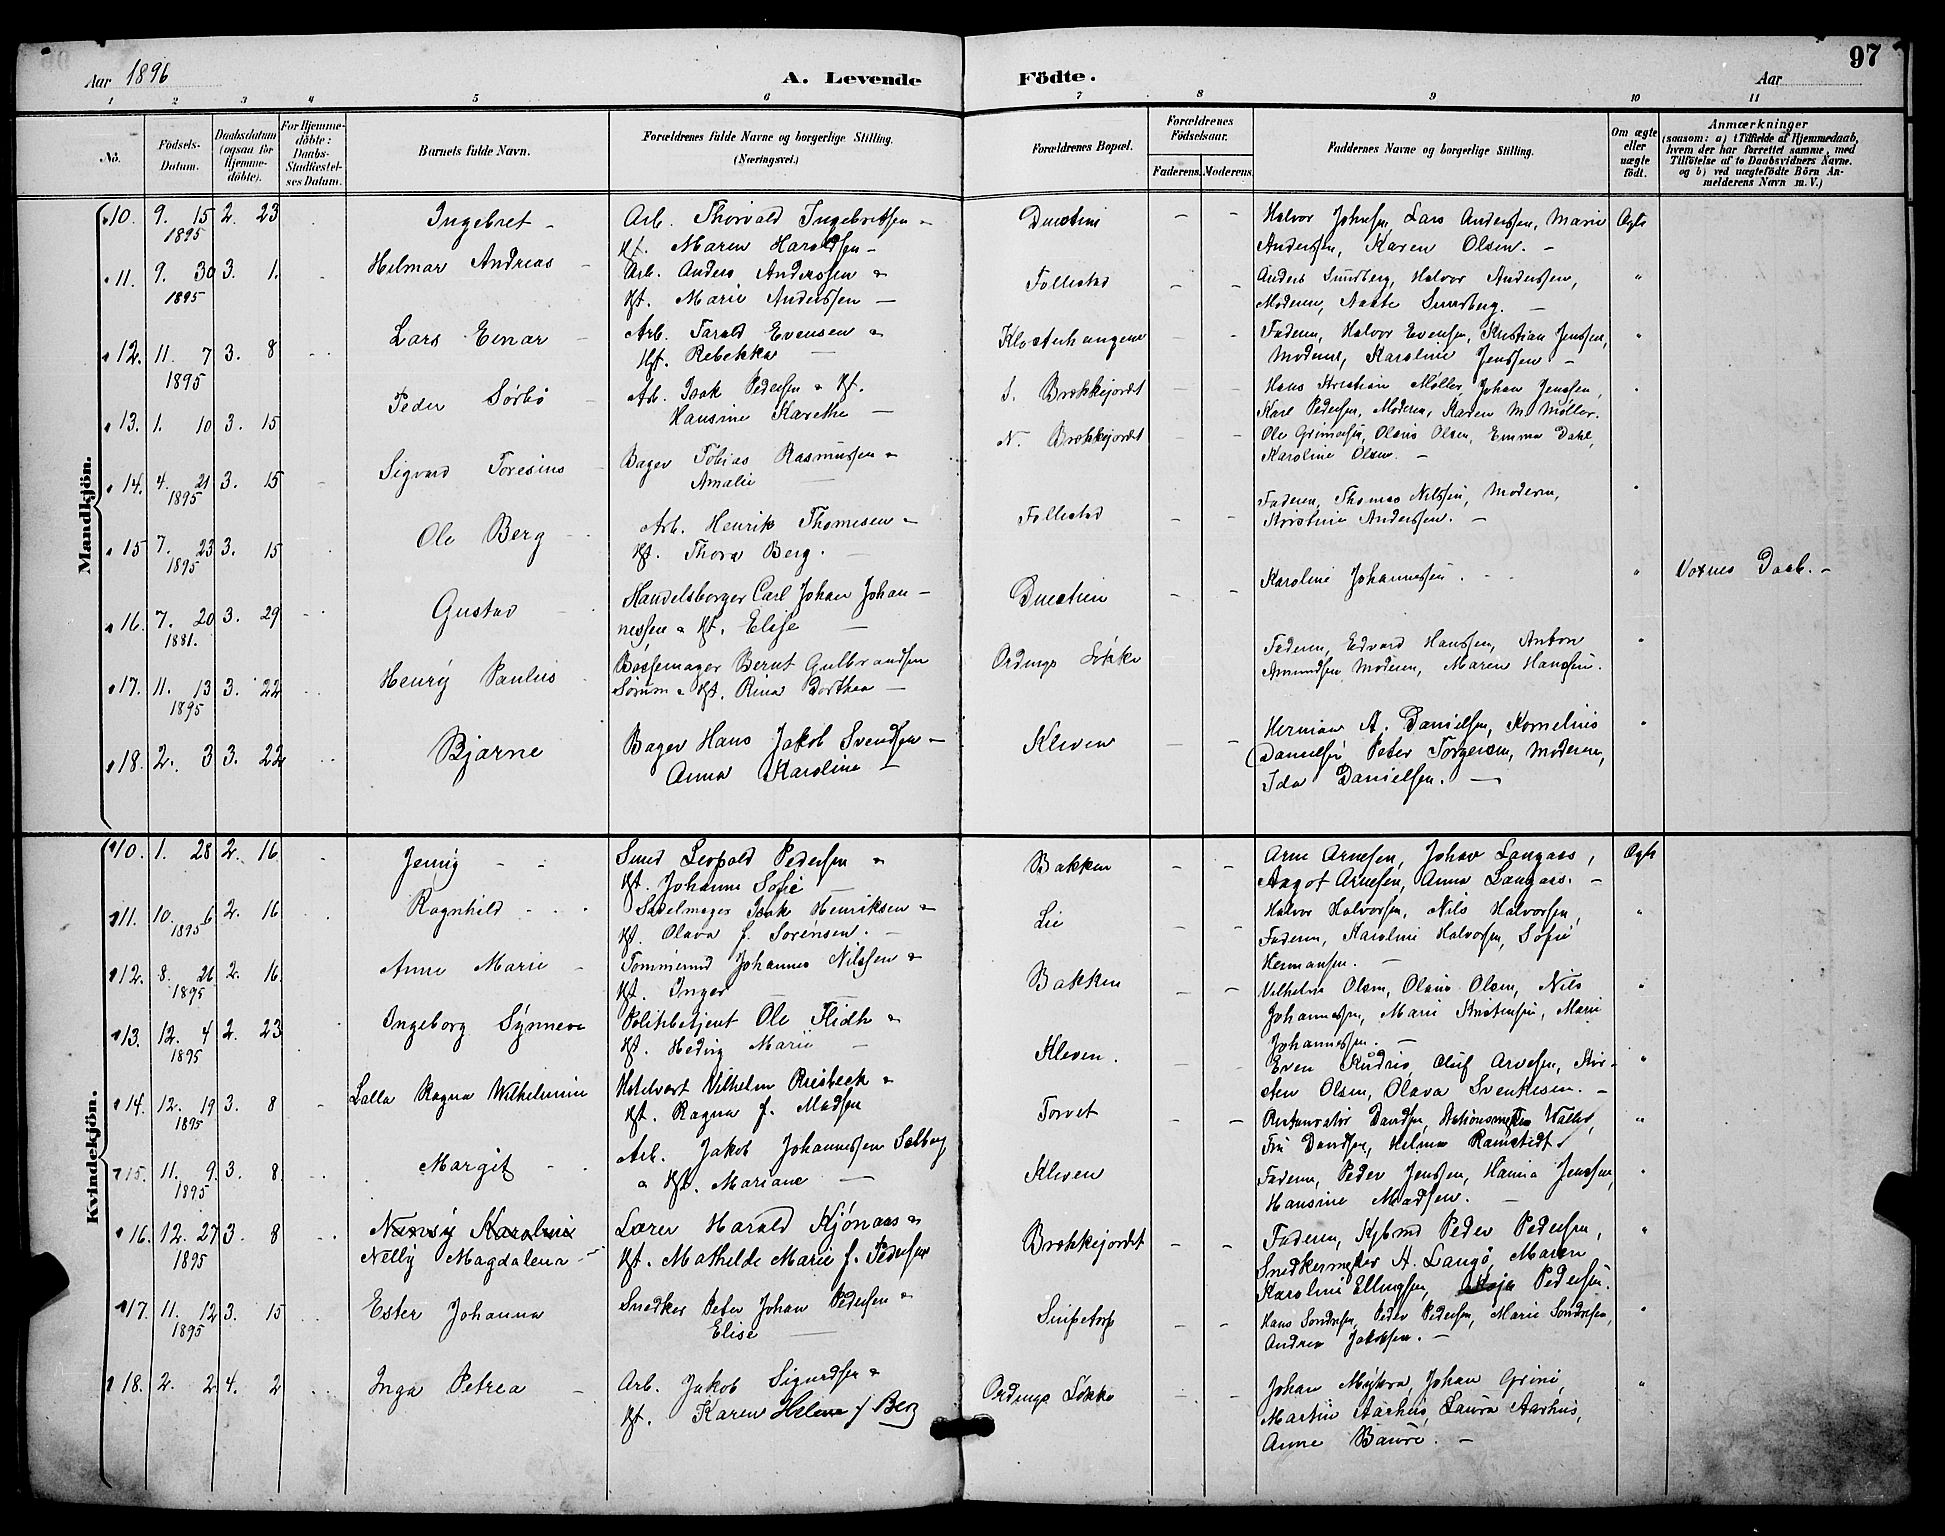 97
Aar 1896
A. Levende Födte.
Aar
1 2 3 4 5 6 7 8 9 10 11
No.
Födsels-Datum.
Daabsdatum (ogsaa for Hjemme-döbte).
For Hjemme-döbte: Daabs-Stadfæstel-ses Datum.
Barnets fulde Navn.
Forældrenes fulde Navne og borgerlige Stilling. (Næringsvei.)
Forældrenes Bopæl.
Forældrenes Födselsaar.
Faderens. Moderens.
Faddernes Navne og borgerlige Stilling.
Om ægte eller uægte födt.
Anmærkninger
(saasom: a) i Tilfælde af Hjemmedaab, hvem der har forrettet samme, med Tilföielse af to Daabsvidners Navne. og b) ved uægtefödte Börn Anmelderens Navn m. V.)
Mandkjön.
10. 9. 15 2. 23 Ingebret - Arb. Thorvald Ingebretsen - Halvor Johnsen, Lars Anderssen, Marie Ægte
1895 Kst. Maren Haraldsen - Anderssen, Karen Olsen. -
11. 9. 30 3. 1. Helmar Andreas - Arb. Anders Anderssen & Follestad - - Anders Sundberg, Halvor Anderssen, "
1895 Kst. Marie Anderssen - Moderen,
12. 11. 7 3. 8 Lars Einar - Arb. Tarald Evensen & Klosterhaugene - - Faderen, Halvor Evensen, Kristian Jenssen, "
1895 Kst. Rebekka - Moderen, Karoline Jenssen -
13. 1. 10 3. 15 Peder Sörbö - Arb. Isak Pedersen & Kst. S. Brækkejordet - - Hans Kristian Møller, Johan Jenssen,
Hansine Karethe - Karl Pedersen, Moderen, Karen M Møller.
14. 4. 21 3. 15 Sigvard Toresius - Bager Tobias Rasmussen & N. Brækkejordet - - Olaus Olsen, Emma Dahl,
1895 Amalie - Karoline Olsen. -
15 7. 23 3. 15 Ole Berg - Arb. Henrik Thomesen - Follestad - - Faderen, Thomas Nilssen, Moderen, "
1895 Kst. Thora Berg. - Kristine Anderssen. -
16. 7. 20 3. 29 Gustav - Handelsborger Carl Johan Johan- - - Karoline Johannessen. - - " Voxnes Daab. -
1881. nessen & Kst. Elise -
17. 11. 13 3. 22 Henry Paulus - Bernt Gulbrandsen Ordings Løkke Faderen, Edvard Hanssen, Anton "
1895 Sörum & Kst. Rina Dorthea - Amundsen Moderen, Maren Hanssen.
18. 2. 3 3. 22 Bjarne Bager Hans Jakob Svendsen - Kleven - - Herman A. Danielsen, Kornelius "
Anna Karoline - Danielsen Peter Torgersen, Moderen,
Ida Danielsen. -
Kvindekjön.
10. 1. 28 2. 16 Jenny - - Smed Leopold Pedersen & Bakken - - Arne Arnesen, Johan Langaas, Ægte
Kst. Johanne Sofie - Aagot Arnesen, Anna Langaas. -
11. 10. 6 2. 16 Ragnhild - - - Sadelmager Isak Henriksen & Lie - - Halvor Halvorsen, Nils Halvorsen, "
1895 Kst. Olava f. Sorensen. - Faderen, Karoline Halvorsen, Sofie
Hermansen. -
12. 8. 26 2. 16 Anne Marie - Tømmermd Johannes Nilssen & Bakken - - Vilhelm Olsen, Olaus Olsen, Nils "
1895 Kst. Inger - Johannessen, Marie Kristensen, Marie
Johannessen. -
13. 12. 4 2. 23 Ingeborg Synneve Politibetjent Ole Flidh & Kleven. - - Even Oluf Arvesen, Kir- "
1895 Kst. Hedvig Marie - sten Olsen, Olava Svenkesen. -
14. 12. 19 3. 8 Lalla Ragna Wilhelmine Hotelvært Vilhelm Riesbeck & Torvet - - Restauratør Davidsen, Wæller, "
1895 Kst. Ragna f. Madsen Fru Davidsen, Helma Ramstedt.
15. 11. 9. 3. 8 Margit - - Arb. Jakob Johannessen Solberg Kleven Faderen, Peder Jenssen, Hanna Jenssen, "
1895 & Kst. Mariane - Hansine Madsen. -
16. 12. 27 3. 8 Nanny Karoline Lærer Harald Kjönaas & Brækkejordet - - Faderen, Kjbmd Peder Pedersen, "
1895 Nelly Magdalena - Kst. Mathilde Marie f. Pedersen Snedkermester A. Langø, Maren
Karoline Ellingsen, Pedersen.
17. 11. 12 3. 15 Ester Johanna Snedker Peter Johan Pedersen & Snipetorp - - Hans Sondresen, Peder Pedersen, Marie Sondresen, "
1895 Elise - Andrea Jakobsen. -
18. 2. 2 4. 2 Inga Petrea - Arb. Jakob Sigurdsen & Ordings Løkke - - Johan Myhra, Johan Grini, "
Kst. Karen Helene f Berg Martin Aarhus, Laura Aarhus,
Anne Baure. -